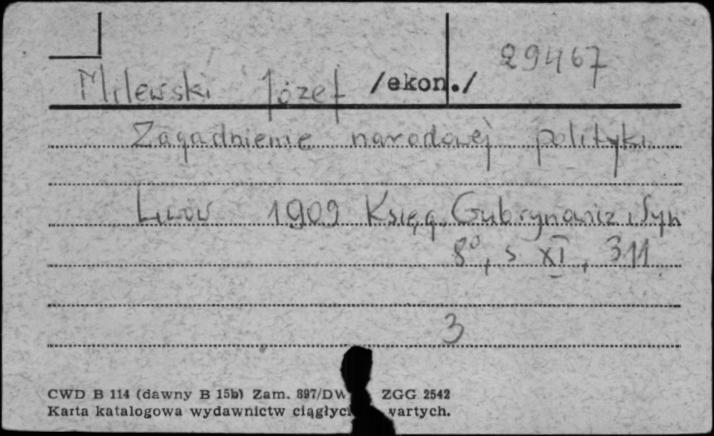 29467
Milewski Józef /ekon./
Zagadnienie narodowej polityki
Lwów 1909 Księg. Gubrynowicz i Syn
8°, s XI, 311
3
CWD B 114 (dawny B 15b) Zam. 897/DW ZGG 2542
Karta katalogowa wydawnictw ciągłyc wartych.